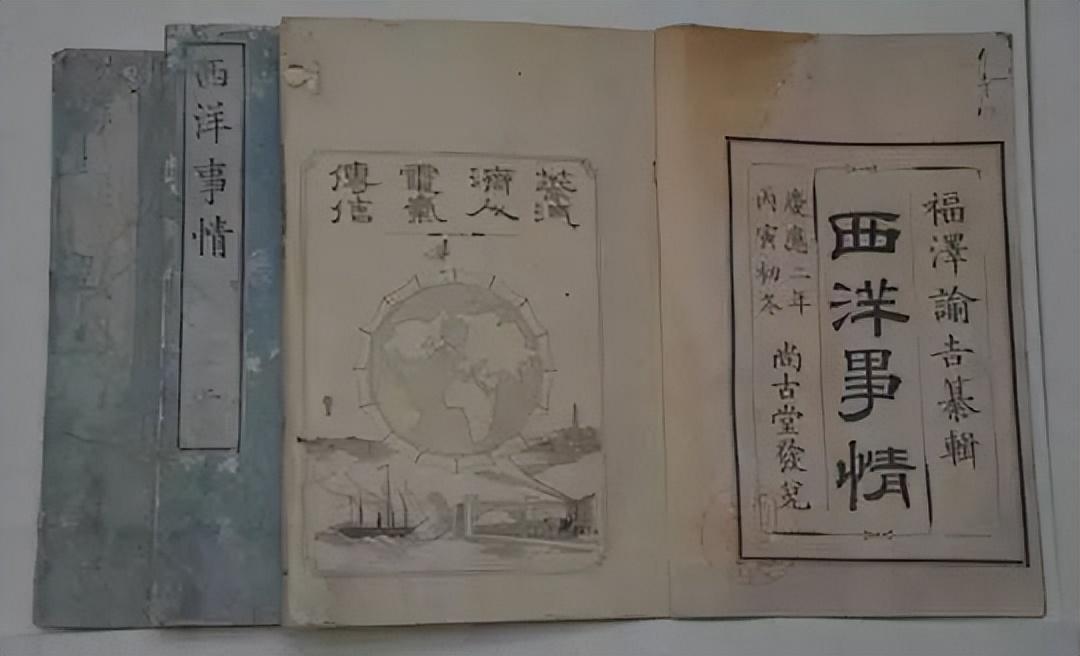 福澤諭吉纂輯
西洋事情
慶應二年
丙寅初冬
尚古堂發兌
蒸汽
濟人
電氣
傳信
西洋事情 二